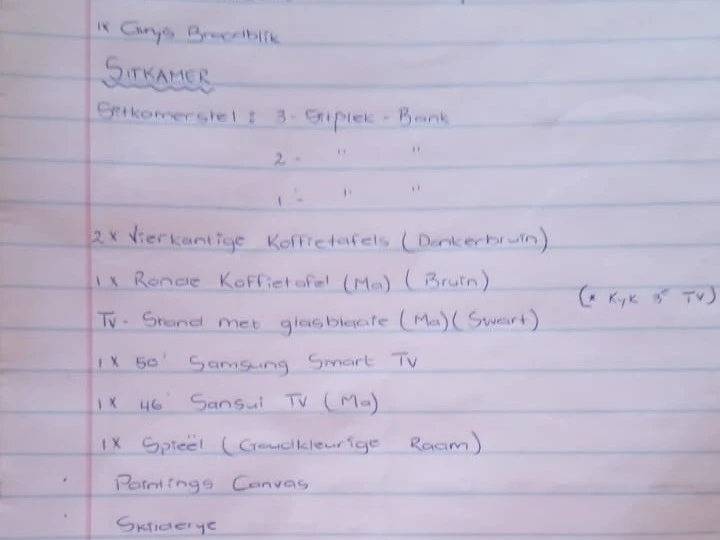 1x Grys Broodblik
SITKAMER
Sitkamerstel : 3 - Sitplek - Bank
2 - " "
1 - " "
2x Vierkantige Koffietafels (Donkerbruin)
1x Ronde Koffietafel (Ma) (Bruin)
(* Kyk 3e TV)
TV - Stand met glasblaaie (Ma) (Swart)
1x 50' Samsung Smart TV
1x 46' Sansui TV (Ma)
1x Spieël (Goudkleurige Raam)
. Paintings Canvas
. Skilderye